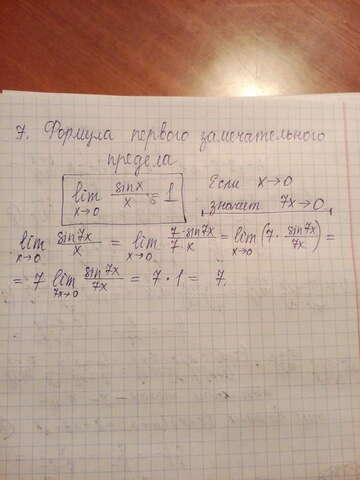 7. Формула первого замечательного
предела
lim x→0 sinx/x = 1
Если x→0
значит 7x→0
lim x→0 sin7x/x = lim x→0 7·sin7x/7·x = lim x→0 (7 · sin7x/7x) =
= 7 lim 7x→0 sin7x/7x = 7 · 1 = 7.